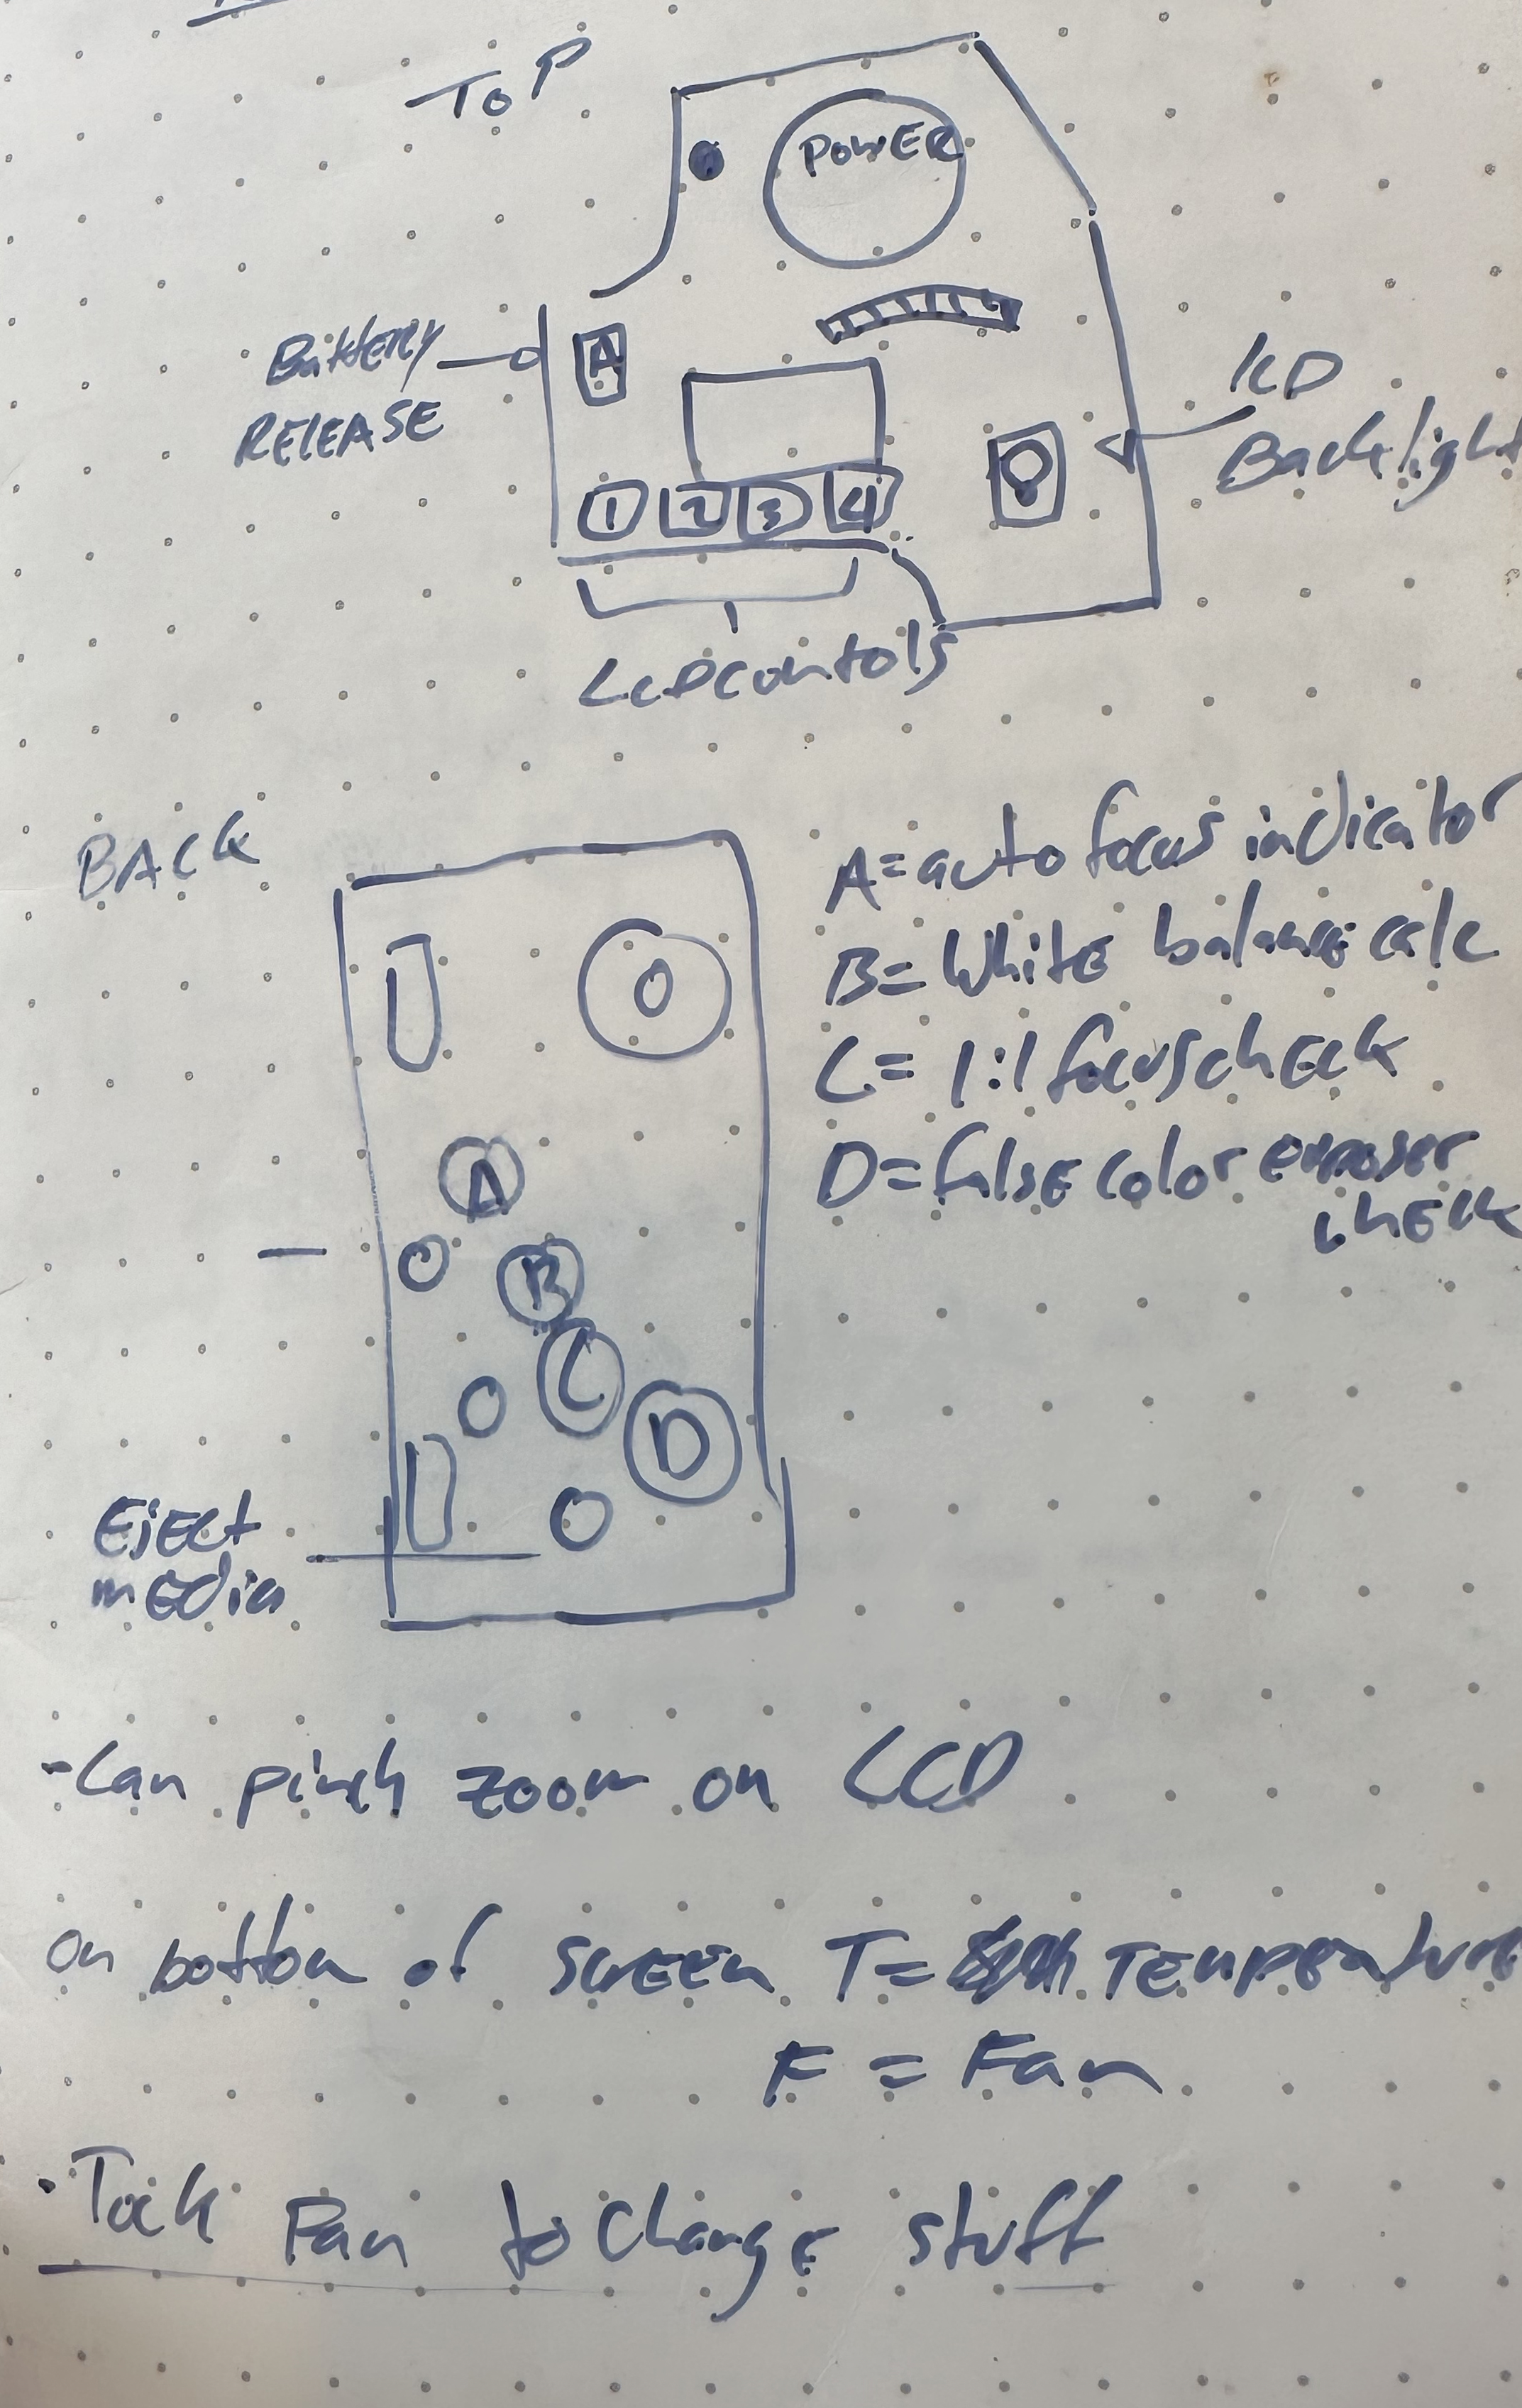 TOP
POWER
Battery
RELEASE
A
LCD
Backlight
1 2 3 4
LCD contols
BACK
A= auto focus indicator
B= White balance calc
C= 1:1 focus chEck
D= falsE color exposer
chEck
O
A
B
C
D
EjEct
mEdia
- Can pinch zoom on LCD
on bottom of scrEEn T= TEmpErature
F = Fan
Pan to changE stuff